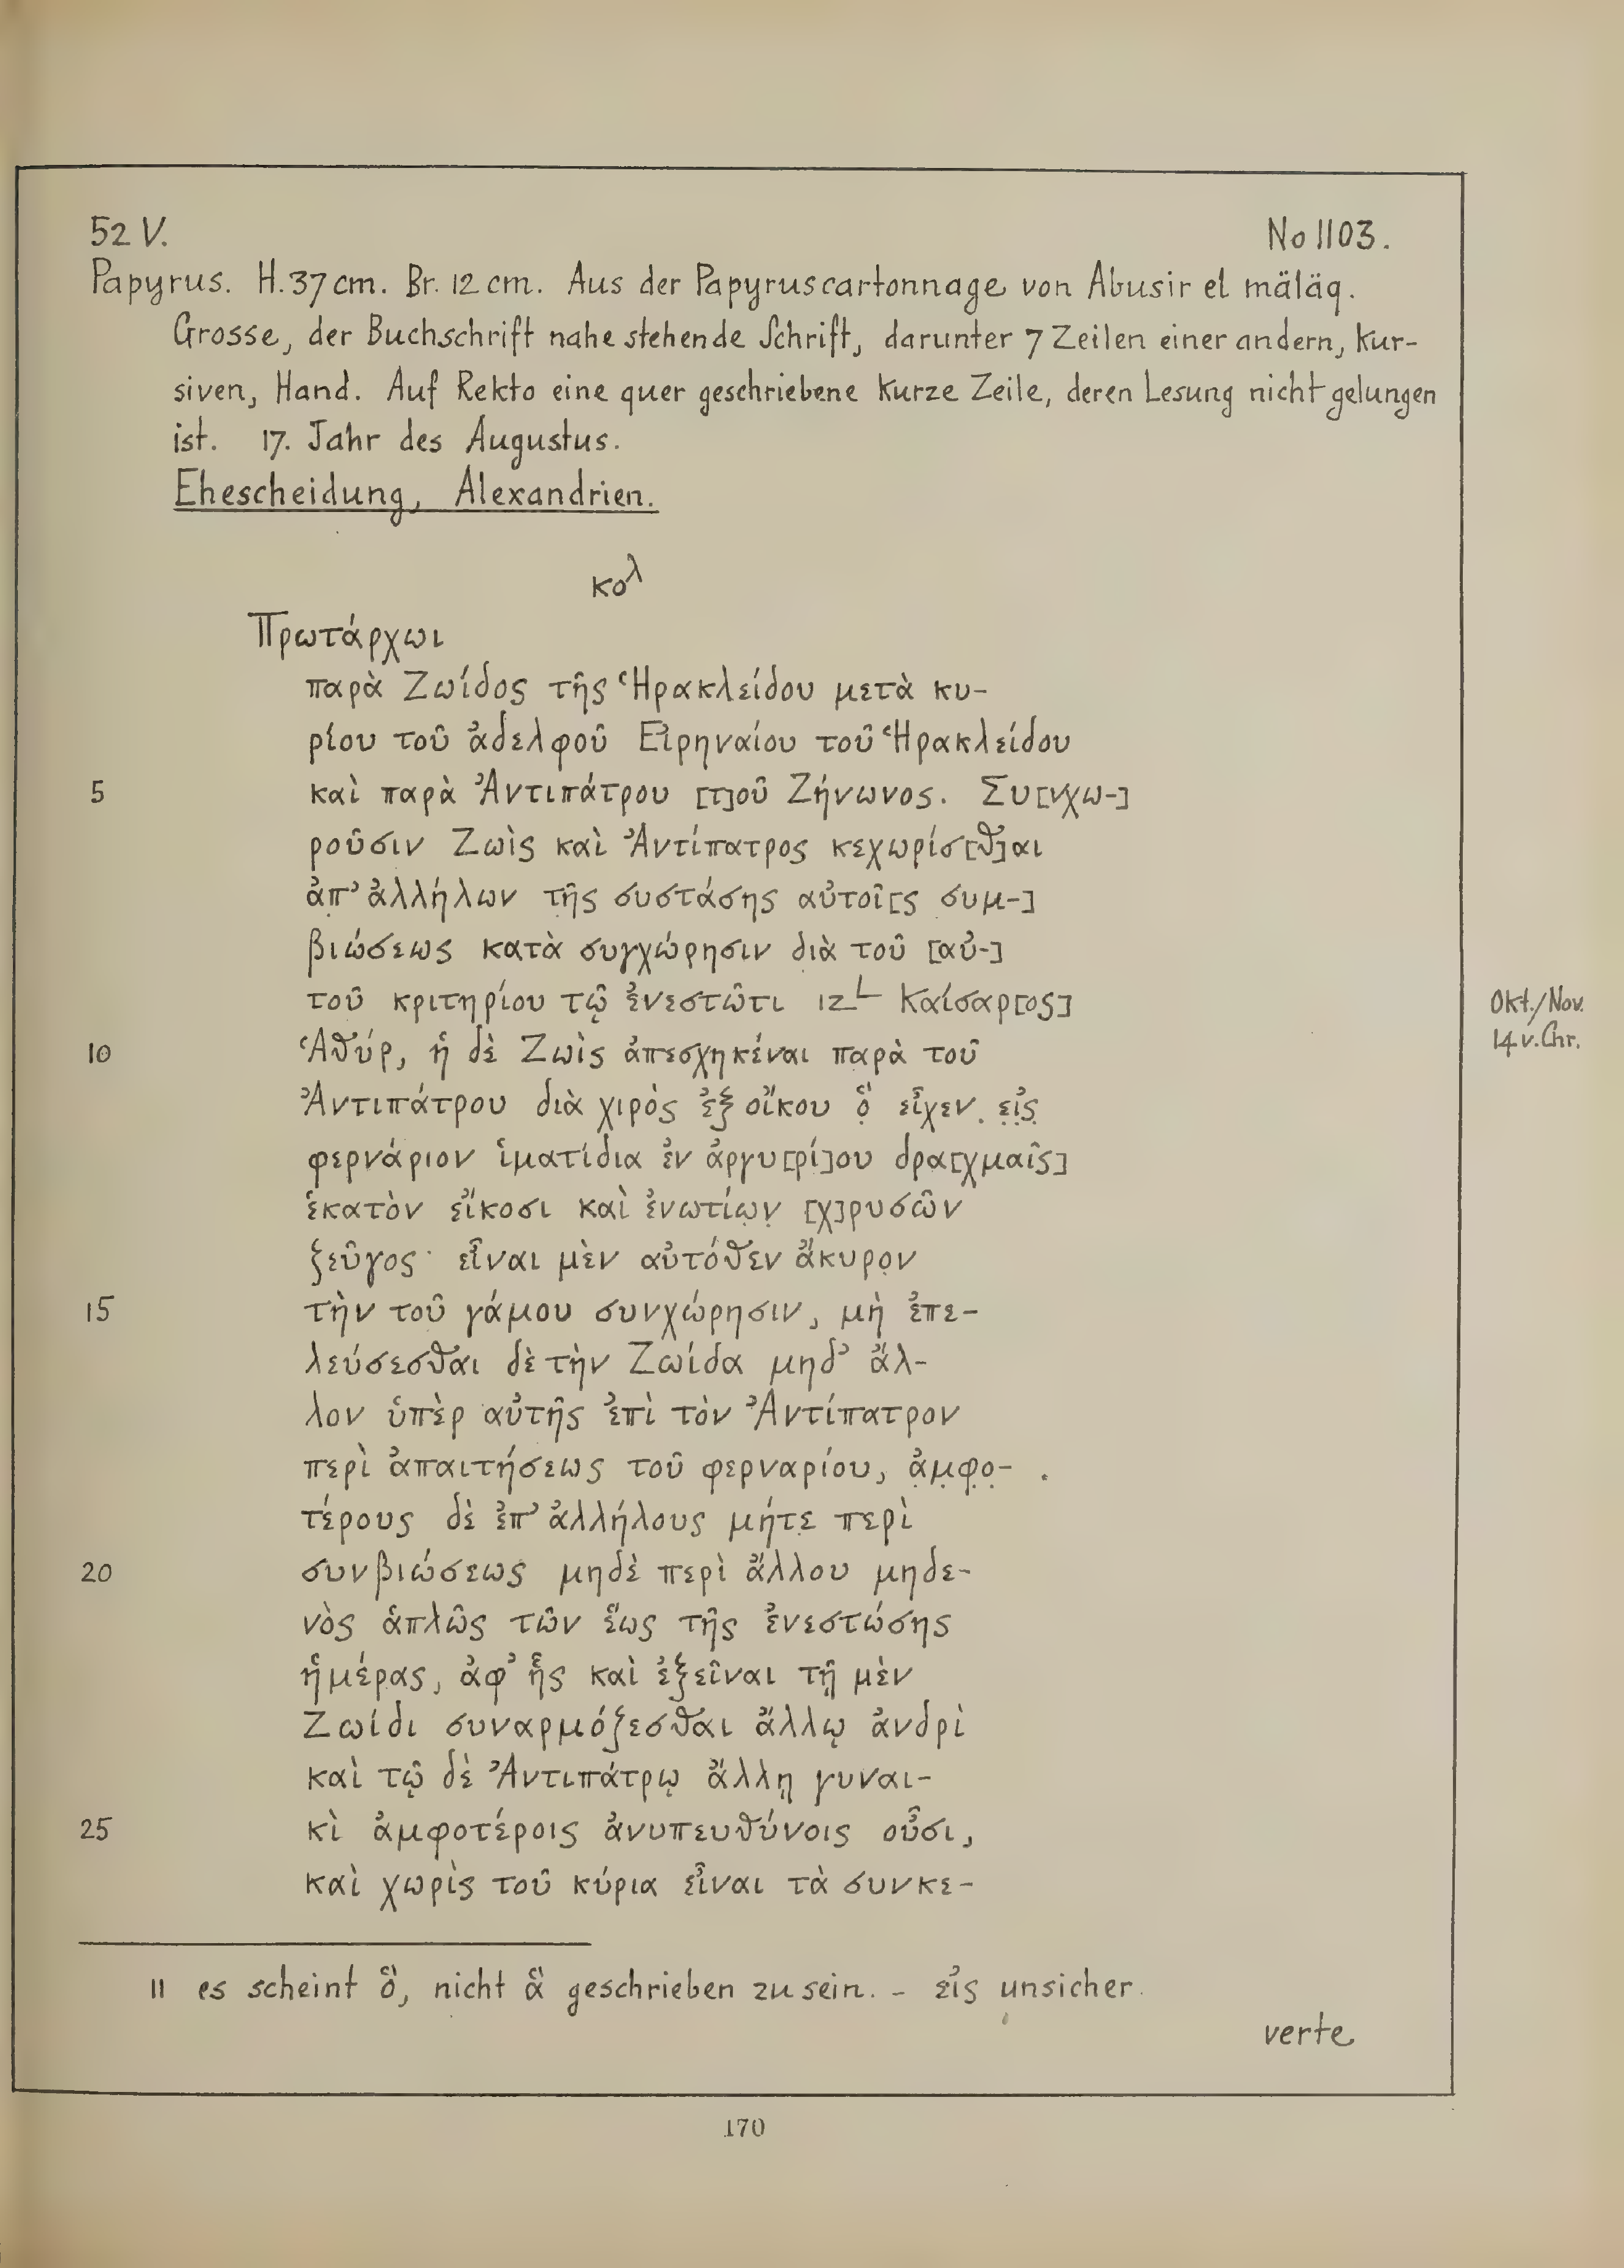 52 V. No 1103.
Papyrus. H. 37 cm. Br. 12 cm. Aus der Papyruscartonnage von Abusir el mäläq.
Grosse, der Buchschrift nahe stehende Schrift, darunter 7 Zeilen einer andern, kur-
siven, Hand. Auf Rekto eine quer geschriebene kurze Zeile, deren Lesung nicht gelungen
ist. 17. Jahr des Augustus.
Ehescheidung, Alexandrien.
κολ
Πρωτάρχωι
παρὰ Ζωίδος τῆς Ἡρακλείδου μετὰ κυ-
ρίου τοῦ ἀδελφοῦ Εἰρηναίου τοῦ Ἡρακλείδου
5 καὶ παρὰ Ἀντιπάτρου [τ]οῦ Ζήνωνος. Συ[νχω-]
ροῦσιν Ζωὶς καὶ Ἀντίπατρος κεχωρίσ[θ]αι
ἀπ᾽ ἀλλήλων τῆς συστάσης αὐτοῖ[ς συμ-]
βιώσεως κατὰ συγχώρησιν διὰ τοῦ [αὐ-]
τοῦ κριτηρίου τῷ ἐνεστῶτι ιζ L Καίσαρ[ος] Okt./Nov. 14 v. Chr.
10 Ἁθύρ, ἡ δὲ Ζωὶς ἀπεσχηκέναι παρὰ τοῦ
Ἀντιπάτρου διὰ χιρὸς ἐξ οἴκου ὃ̣ εἶχεν ̣ ε̣ἰ̣ς̣
φερνάριον ἱματίδια ἐν ἀργυ[ρί]ου δρα[χμαῖς]
ἑκατὸν εἴκοσι καὶ ἐνωτίω̣ν̣ [χ]ρυσῶν
ζεῦγος· εἶναι μὲν αὐτόθεν ἄκυρο̣ν
15 τὴν τοῦ γάμου συνχώρησιν, μὴ ἐπε-
λεύσεσθαι δὲ τὴν Ζωίδα μηδ᾽ ἄλ-
λον ὑπὲρ αὐτῆς ἐπὶ τὸν Ἀντίπατρον
περὶ ἀπαιτήσεως τοῦ φερναρίου, ἀ̣μ̣φ̣ο̣-
τέρους δὲ ἐπ᾽ ἀλλήλους μήτε̣ περὶ
20 συνβιώσεως μηδὲ περὶ ἄλλου μηδε-
νὸς ἁπλῶς τῶν ἕως τῆς ἐνεστώσης
ἡμέρας, ἀφ᾽ ἧς καὶ ἐξεῖναι τῇ μὲν
Ζωίδι συναρμόζεσθαι ἄλλῳ ἀνδρὶ
καὶ τῷ δὲ Ἀντιπάτρῳ ἄλλῃ γυναι-
25 κὶ ἀμφοτέροις ἀνυπευθύνοις οὖσι,
καὶ χωρὶς τοῦ κύρια εἶναι τὰ συνκε-
11 es scheint ὃ, nicht ἃ geschrieben zu sein. - εἰς unsicher.
verte
170